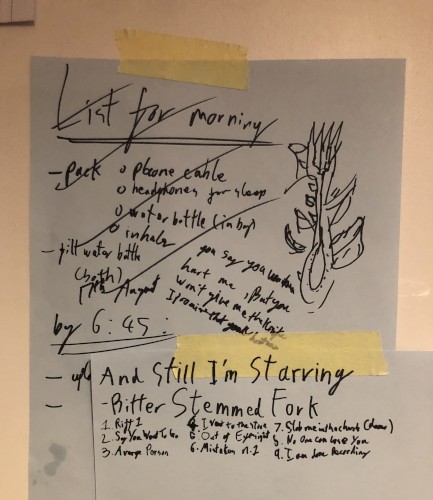 List for morning
- pack o phone cable
o headphones for sleep
o water bottle (in bag)
o inhaler
- fill water bottle
(both)
17th August
you say you
hurt me. But you
won't give me the knife
I promise that
by 6:45:
And Still I'm Starving
- Bitter Stemmed Fork
1. Riff 1
2. Say You Want To Go
3. Average Person
4. I Went to the Store
6. Out of Eyesight
6. Mistaken n.1
7. Stab me in the church (demo)
8. No One Can Love You
9. I am done Recording